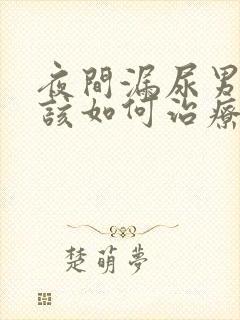 夜間漏尿男
該如何治療
楚萌夢